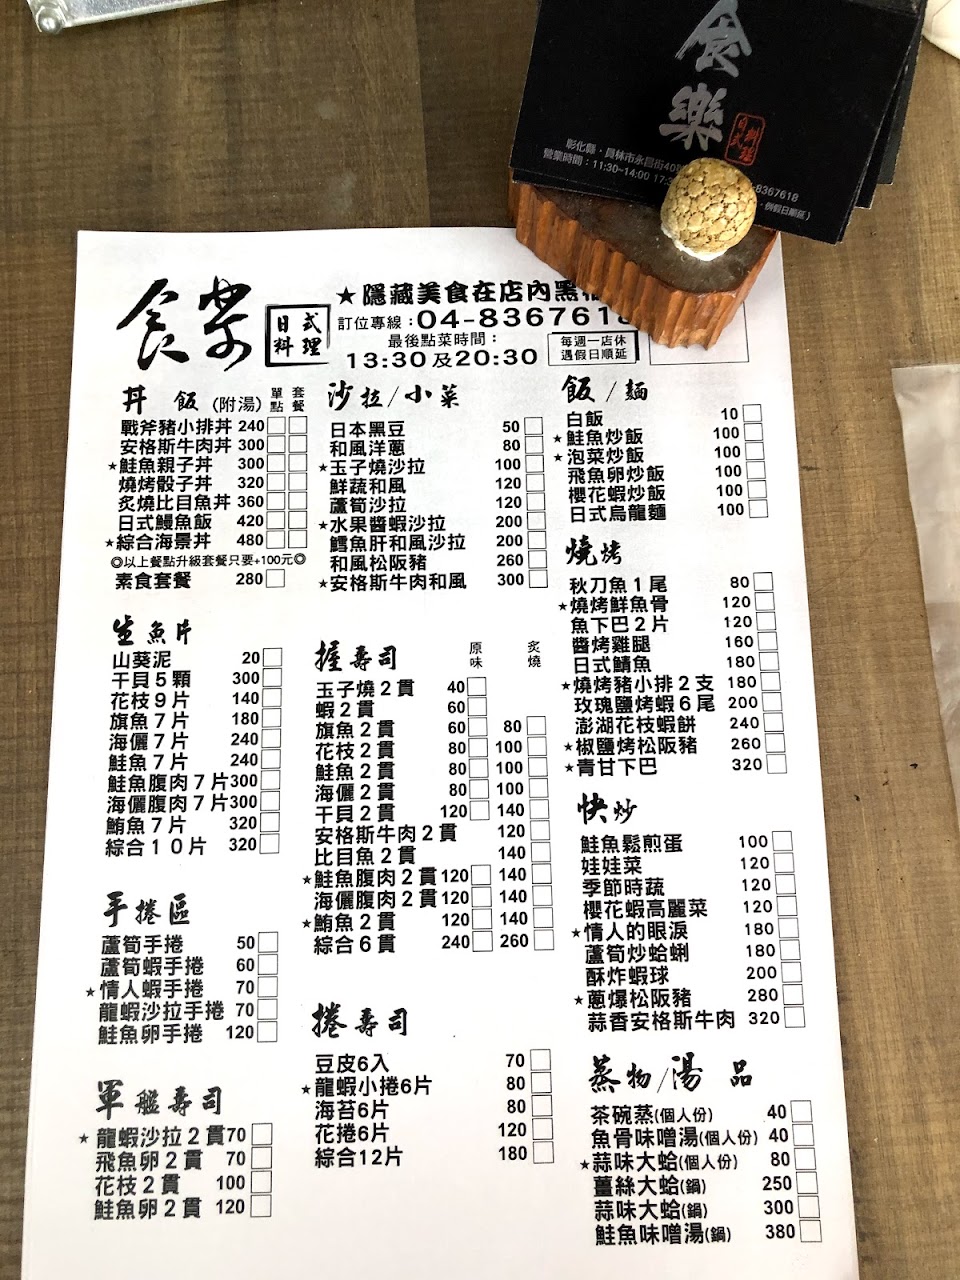 食樂
日式料理
彰化縣・員林市永昌街40
8367618
營業時間：11:30~14:00 17:3
例假日順延）
食樂
日式料理
★隱藏美食在店內黑
訂位專線：04-8367618
最後點菜時間：
13:30及20:30
每週一店休
遇假日順延
丼 飯(附湯) 單點 套餐
戰斧豬小排丼 240
安格斯牛肉丼 300
★鮭魚親子丼 300
燒烤骰子丼 320
炙燒比目魚丼 360
日式鰻魚飯 420
★綜合海景丼 480
◎以上餐點升級套餐只要+100元◎
素食套餐 280
生魚片
山葵泥 20
干貝５顆 300
花枝９片 140
旗魚７片 180
海儷７片 240
鮭魚７片 240
鮭魚腹肉７片 300
海儷腹肉７片 300
鮪魚７片 320
綜合１０片 320
手捲區
蘆筍手捲 50
蘆筍蝦手捲 60
★情人蝦手捲 70
龍蝦沙拉手捲 70
鮭魚卵手捲 120
軍艦壽司
★龍蝦沙拉２貫 70
飛魚卵２貫 70
花枝２貫 100
鮭魚卵２貫 120
沙拉/小菜
日本黑豆 50
和風洋蔥 80
★玉子燒沙拉 100
鮮蔬和風 120
蘆筍沙拉 120
★水果醬蝦沙拉 200
鱈魚肝和風沙拉 200
和風松阪豬 260
★安格斯牛肉和風 300
握壽司 原味 炙燒
玉子燒２貫 40
蝦２貫 60
旗魚２貫 60 80
花枝２貫 80 100
鮭魚２貫 80 100
海儷２貫 80 100
干貝２貫 120 140
安格斯牛肉２貫 120
比目魚２貫 140
★鮭魚腹肉２貫 120 140
海儷腹肉２貫 120 140
★鮪魚２貫 120 140
綜合６貫 240 260
捲壽司
豆皮6入 70
★龍蝦小捲6片 80
海苔6片 80
花捲6片 120
綜合12片 180
飯/麵
白飯 10
★鮭魚炒飯 100
★泡菜炒飯 100
飛魚卵炒飯 100
櫻花蝦炒飯 100
日式烏龍麵 100
燒烤
秋刀魚１尾 80
★燒烤鮮魚骨 120
魚下巴２片 120
醬烤雞腿 160
日式鯖魚 180
★燒烤豬小排２支 180
玫瑰鹽烤蝦６尾 200
澎湖花枝蝦餅 240
★椒鹽烤松阪豬 260
★青甘下巴 320
快炒
鮭魚鬆煎蛋 100
娃娃菜 120
季節時蔬 120
櫻花蝦高麗菜 120
★情人的眼淚 180
蘆筍炒蛤蜊 180
酥炸蝦球 200
★蔥爆松阪豬 280
蒜香安格斯牛肉 320
蒸物/湯 品
茶碗蒸(個人份) 40
魚骨味噌湯(個人份) 40
★蒜味大蛤(個人份) 80
薑絲大蛤(鍋) 250
蒜味大蛤(鍋) 300
鮭魚味噌湯(鍋) 380